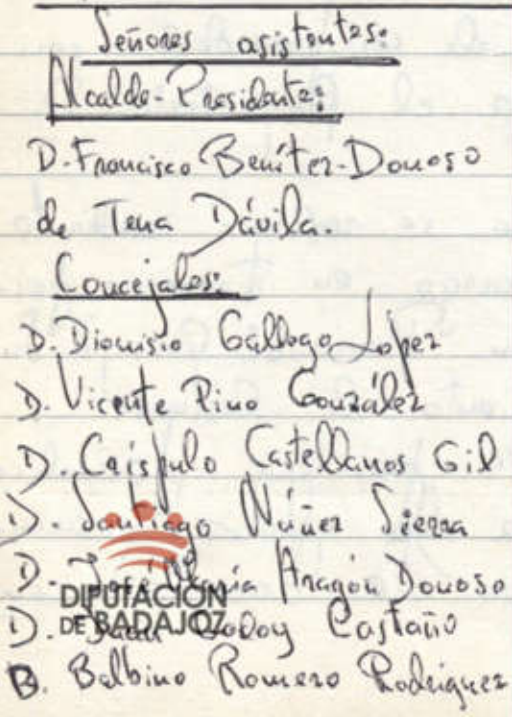 Señores asistentes:
Alcalde-Presidente:
D. Francisco Benítez-Donoso
de Tena Dávila.
Concejales:
D. Dionisio Gallego Lopez
D. Vicente Pino González
D. Críspulo Castellanos Gil
D. Santiago Núñez Sierra
D. José María Aragón Donoso
D. Juan Godoy Castaño
B. Balbino Romero Rodríguez
DIPUTACIÓN
DE BADAJOZ